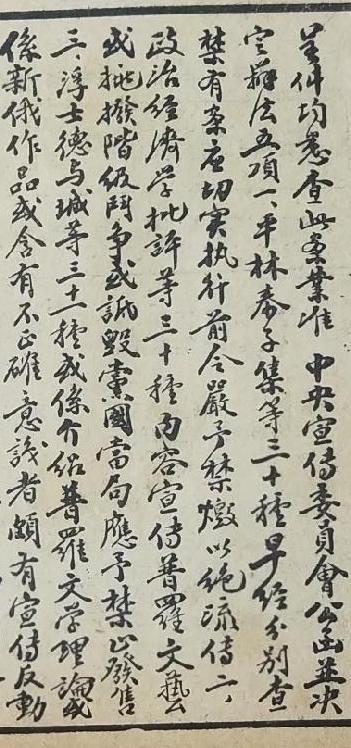 呈件均悉查此案業准 中央宣傳委員會公函並決
定辦法五項一、平林泰子集等三十種早經分別查
禁有案应切实执行前令嚴予禁燬以絕流傳二、
政治経濟学批評等三十種内容宣傳普羅文藝
或挑撥階级鬥争或詆毀黨國當局應予禁止發售
三、浮士德与城等三十一種或係介紹普羅文学理論或
係新俄作品或含有不正確意識者頗有宣傳反動